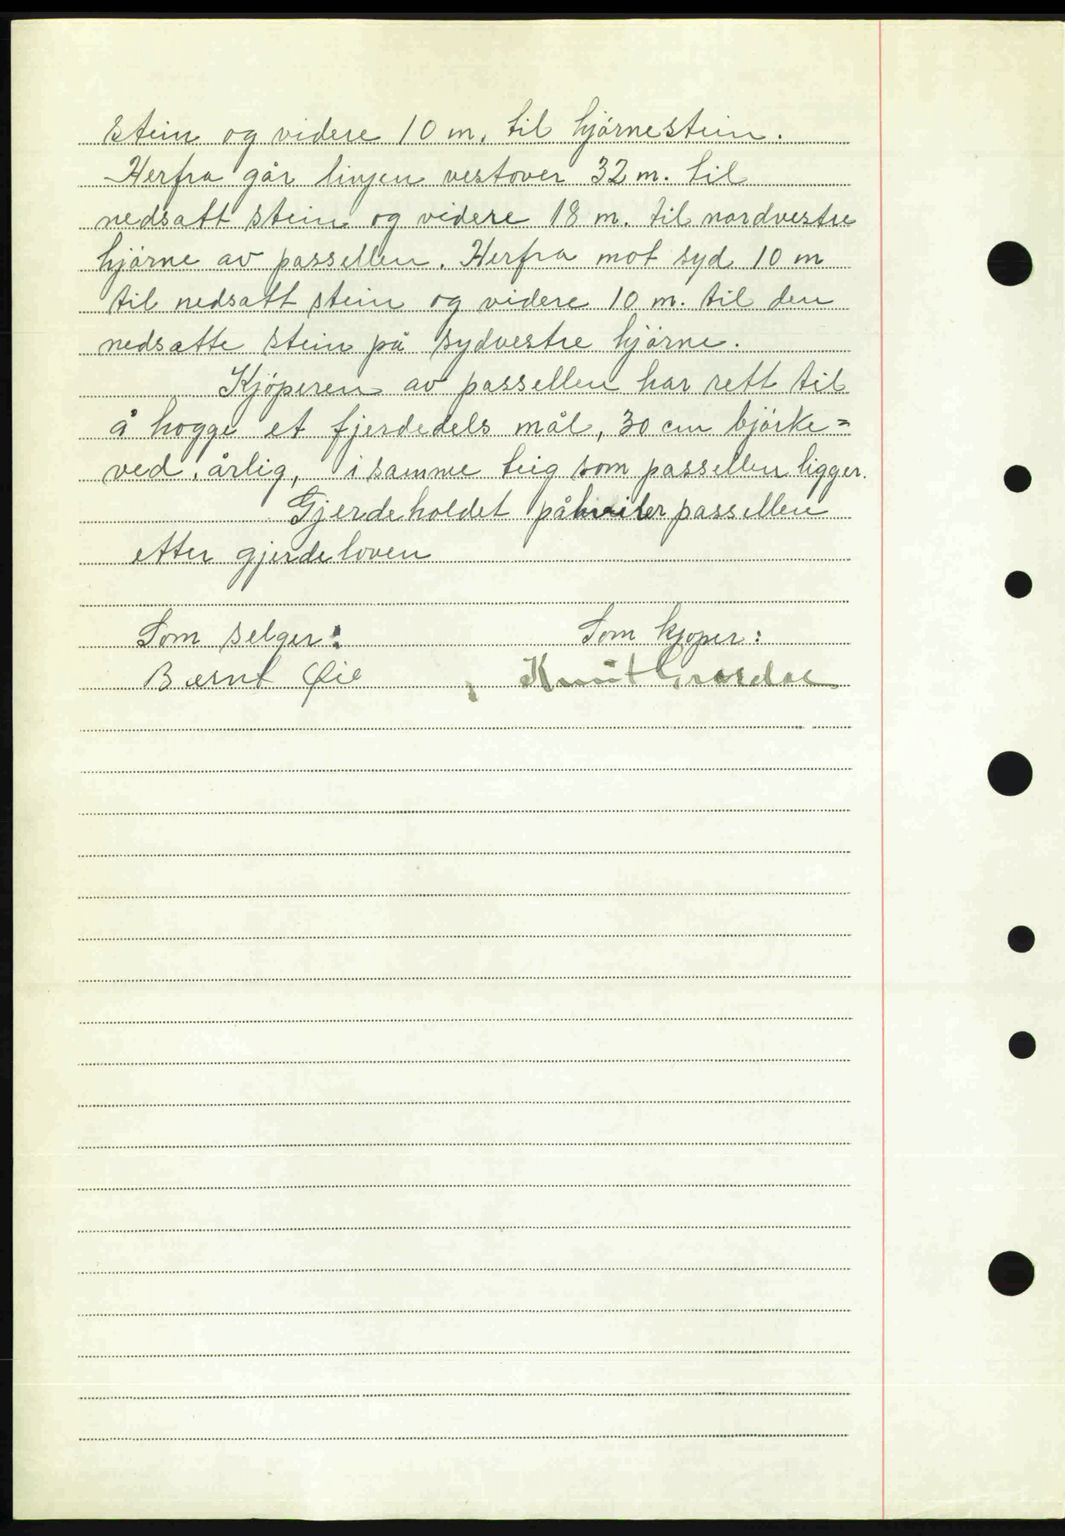 stein og videre 10 m. til hjörnestein.
Herfra går linjen vestover 32 m. til
nedsatt stein og videre 18 m. til nordvestre
hjörne av passellen. Herfra mot syd 10 m
til nedsatt stein og videre 10 m. til den
nedsatte stein på sydvestre hjörne.
Kjöperen av passellen har rett til
å hogge et fjerdedels mål, 30 cm björke=
ved, årlig, i samme teig som passellen ligger.
Gjerdeholdet påhviler passellen
etter gjerdeloven
Som selger: Som kjøper:
Bernt Øie Knut